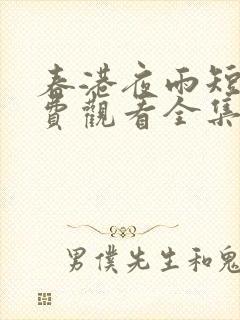 春港夜雨短
費觀看全集
男僕先生和鬼